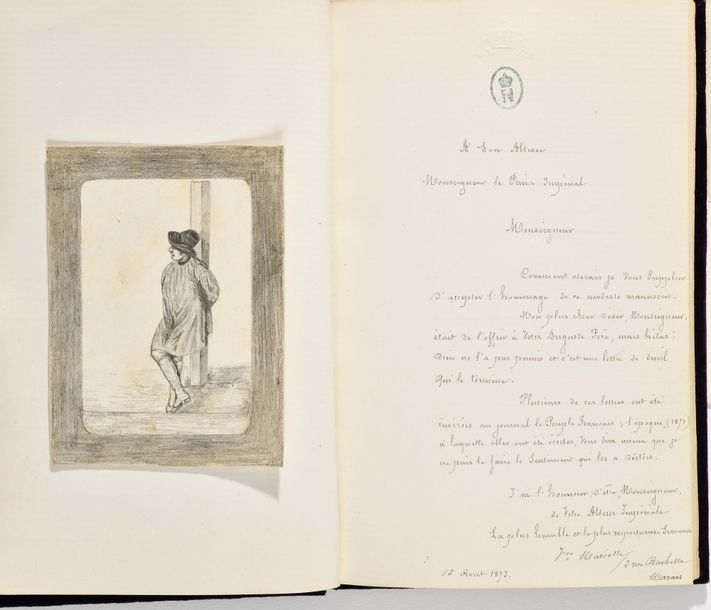 A Son Altesse
Monseigneur le Prince Impérial
Monseigneur
Comment oserais je Vous Supplier
d'accepter l'hommage de ce modeste manuscrit.
Mon plus cher désir, Monseigneur,
était de l'offrir à Votre Auguste Père, mais hélas!
Dieu ne l'a pas permis et c'est une lettre de deuil
qui le termine.
Plusieurs de ces lettres ont été
insérées au journal le Peuple Français; l'époque, (1871)
à laquelle elles ont été écrites, Vous dira mieux que je
ne puis le faire le Sentiment qui les a dictées.
J'ai l'honneur d'être, Monseigneur,
de Votre Altesse Impériale
La plus humble et la plus respectueuse Servante
Vve Mariette
3 rue Barbette
Marais
15 Avril 1873.